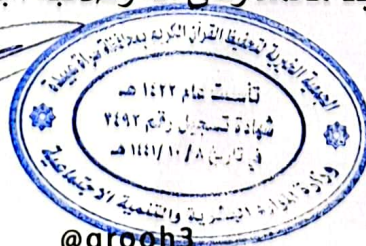 الجمعية الخيرية لتحفيظ القرآن الكريم بمحافظة سراة عبيدة
تأسست عام ١٤٢٢ هـ
شهادة تسجيل رقم ٣٤٩٢
في تاريخ ١٤٤١/١٠/٨ هـ
وزارة الموارد البشرية والتنمية الاجتماعية
@qrooh3